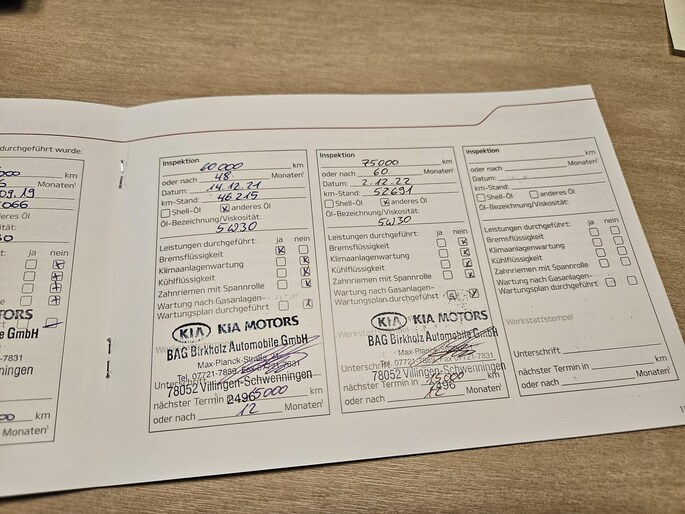 durchgeführt wurde.
km
Monaten¹
09.19
anderes Öl
ja nein
km
Monaten¹
Inspektion 60 000 km
oder nach 48 Monaten¹
Datum: 14.12.21
km-Stand: 46215
Shell-Öl x anderes Öl
Öl-Bezeichnung/Viskosität:
5W30
Leistungen durchgeführt: ja nein
Bremsflüssigkeit x
Klimaanlagenwartung x
Kühlflüssigkeit x
Zahnriemen mit Spannrolle x
Wartung nach Gasanlagen-
Wartungsplan durchgeführt x
KIA KIA MOTORS
BAG Birkholz Automobile GmbH
Max-Planck-Straße
Tel. 07721-7831
Unterschrift
78052 Villingen-Schwenningen
nächster Termin in 15000 km
2496
oder nach 12 Monaten¹
Inspektion 75000 km
oder nach 60 Monaten¹
Datum: 2.12.22
km-Stand: 52691
Shell-Öl x anderes Öl
Öl-Bezeichnung/Viskosität:
5W30
Leistungen durchgeführt: ja nein
Bremsflüssigkeit x
Klimaanlagenwartung x
Kühlflüssigkeit x
Zahnriemen mit Spannrolle x
Wartung nach Gasanlagen-
Wartungsplan durchgeführt x
KIA KIA MOTORS
BAG Birkholz Automobile GmbH
Max-Planck-
Tel. 07721- Fax 07721-7831
Unterschrift
78052 Villingen-Schwenningen
nächster Termin in 15000 km
2496
oder nach 12 Monaten¹
Inspektion km
oder nach Monaten¹
Datum:
km-Stand:
Shell-Öl anderes Öl
Öl-Bezeichnung/Viskosität:
Leistungen durchgeführt: ja nein
Bremsflüssigkeit
Klimaanlagenwartung
Kühlflüssigkeit
Zahnriemen mit Spannrolle
Wartung nach Gasanlagen-
Wartungsplan durchgeführt
Werkstattstempel
Unterschrift
nächster Termin in km
oder nach Monaten¹